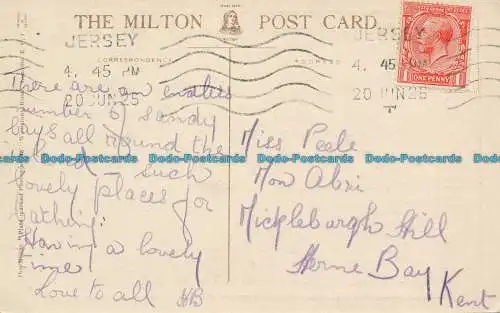 THE MILTON POST CARD.
JERSEY JERSEY
CORRESPONDENCE ADDRESS
4. 45 PM 4. 45 PM
20 JUN 25 20 JUN 25
ONE PENNY
There are an endless
number of sandy
bays all round the
such
lovely places for
bathing.
Having a lovely
time
Love to all HB
Miss Peele
Mon Abri
Micklebargh Hill
Herne Bay
Kent
bb-Postcards bb-Postcards bb-Postcards bb-Postcards bb-Postcards